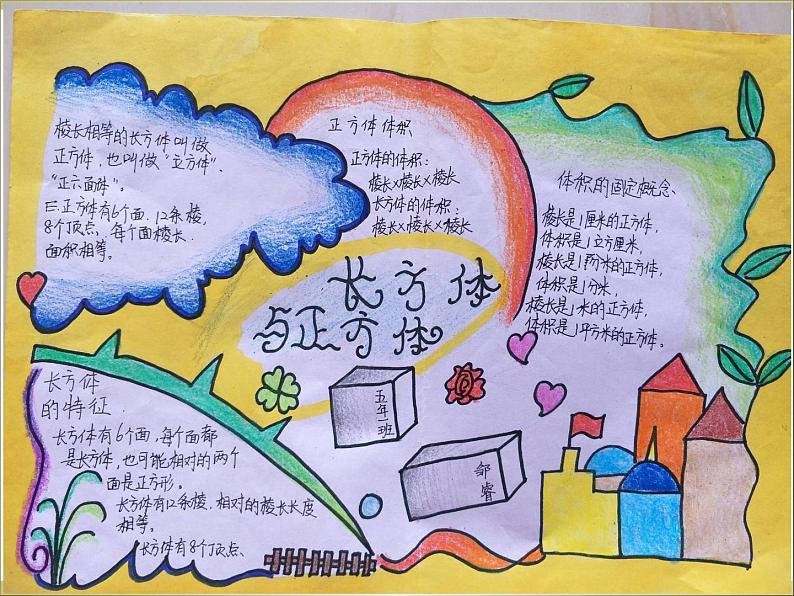 棱长相等的长方体叫做
正方体，也叫做“立方体”、
“正六面体”。
三.正方体有6个面.12条棱,
8个顶点，每个面棱长.
面积相等。
正方体体积
正方体的体积：
棱长x棱长x棱长
长方体的体积：
棱长x棱长x棱长
体积的固定概念、
棱长是1厘米的正方体，
体积是1立方厘米，
棱长是1分米的正方体，
体积是1分米，
棱长是1米的正方体，
体积是1平方米的正方体。
长方体
与正方体
长方体
的特征.
长方体有6个面，每个面都
是长方体，也可能相对的两个
面是正方形。
长方体有12条棱，相对的棱长长度
相等。
长方体有8个顶点、
五年
班
邹
睿